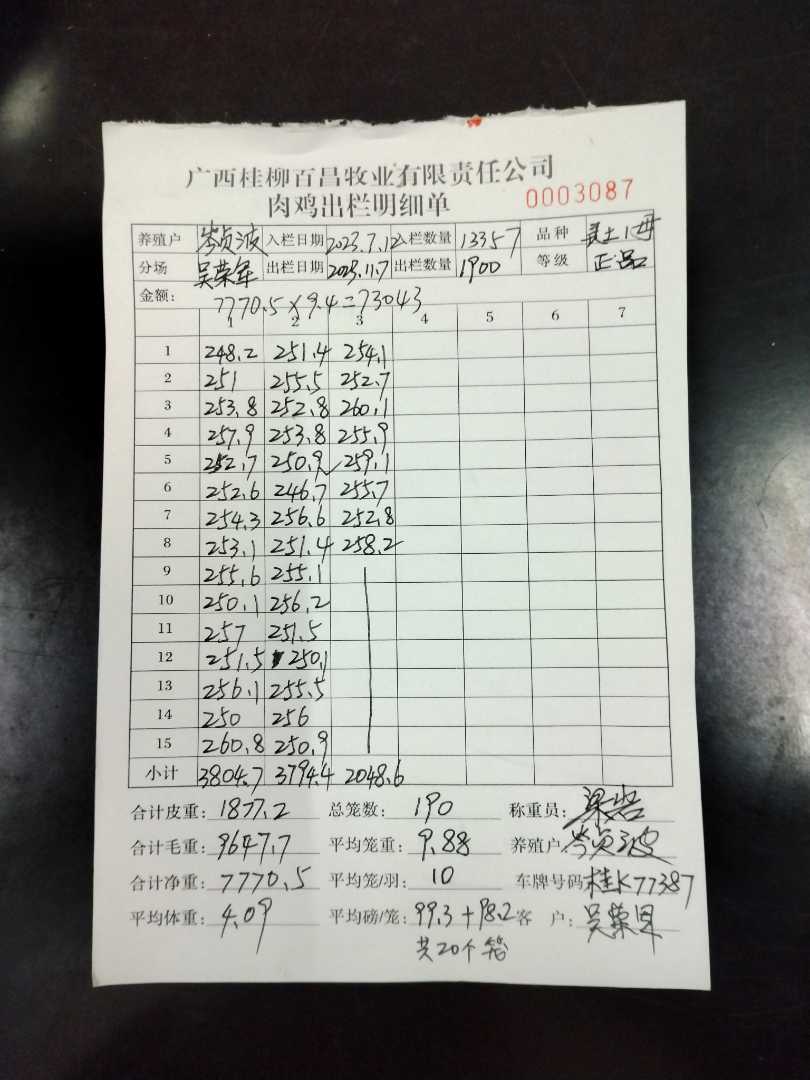 广西桂柳百昌牧业有限责任公司
肉鸡出栏明细单 0003087
养殖户 岑贞波 入栏日期 2023.7.12 入栏数量 13357 品种 土 母
分场 吴荣军 出栏日期 2023.11.7 出栏数量 1900 等级 正品
金额: 7770.5×9.4=73043
1 2 3 4 5 6 7
1 248.2 251.4 254.1
2 251 255.5 252.7
3 253.8 252.8 260.1
4 257.9 253.8 255.9
5 252.7 250.9 259.1
6 252.6 246.7 255.7
7 254.3 256.6 252.8
8 253.1 251.4 258.2
9 255.6 255.1
10 250.1 256.2
11 257 251.5
12 251.5 250.1
13 256.1 255.5
14 250 256
15 260.8 250.9
小计 3804.7 3794.4 2048.6
合计皮重: 1877.2 总笼数: 190 称重员: 梁岩
合计毛重: 9647.7 平均笼重: 9.88 养殖户: 岑贞波
合计净重: 7770.5 平均笼/羽: 10 车牌号码: 桂K77387
平均体重: 4.09 平均磅/笼: 99.3+98.2 客 户: 吴荣
共20个笼